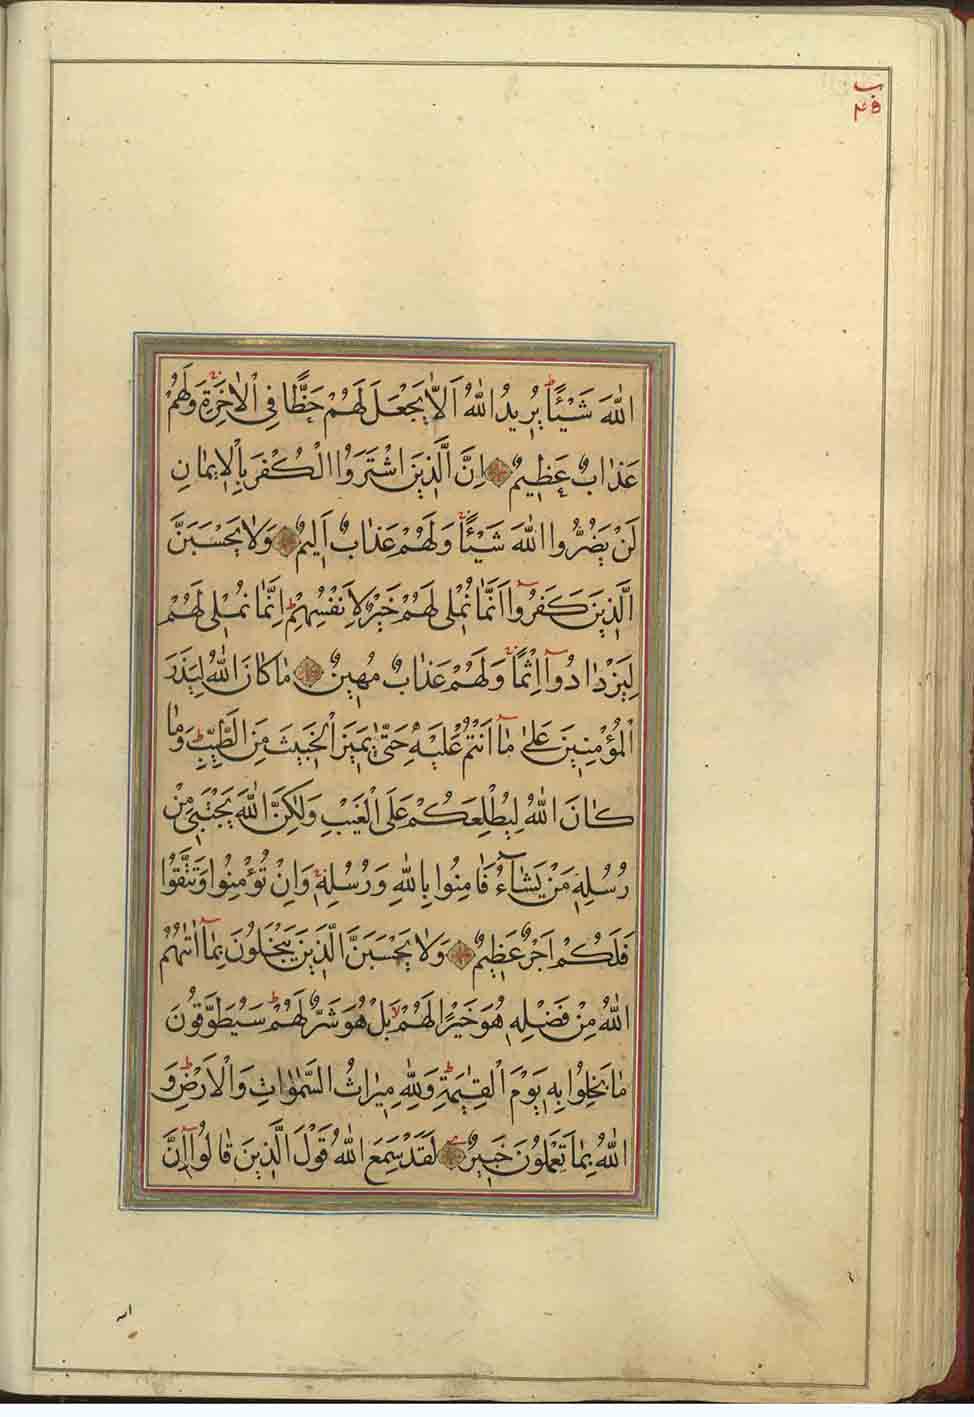 ب
۴۵
اللّٰهَ شَيْـًٔا يُرِيدُ اللّٰهُ اَلَّا يَجْعَلَ لَهُمْ حَظًّا فِي الْاٰخِرَةِ وَلَهُمْ
عَذَابٌ عَظِيمٌ اِنَّ الَّذِينَ اشْتَرَوُا الْكُفْرَ بِالْاِيمَانِ
لَنْ يَضُرُّوا اللّٰهَ شَيْـًٔا وَلَهُمْ عَذَابٌ اَلِيمٌ وَلَا يَحْسَبَنَّ
الَّذِينَ كَفَرُوٓا اَنَّمَا نُمْلِي لَهُمْ خَيْرٌ لِاَنْفُسِهِمْ اِنَّمَا نُمْلِي لَهُمْ
لِيَزْدَادُوٓا اِثْمًا وَلَهُمْ عَذَابٌ مُهِينٌ مَا كَانَ اللّٰهُ لِيَذَرَ
الْمُؤْمِنِينَ عَلٰى مَٓا اَنْتُمْ عَلَيْهِ حَتّٰى يَمِيزَ الْخَبِيثَ مِنَ الطَّيِّبِ وَمَا
كَانَ اللّٰهُ لِيُطْلِعَكُمْ عَلَى الْغَيْبِ وَلٰكِنَّ اللّٰهَ يَجْتَبِي مِنْ
رُسُلِهِ مَنْ يَشَٓاءُ فَاٰمِنُوا بِاللّٰهِ وَرُسُلِهِ وَاِنْ تُؤْمِنُوا وَتَتَّقُوا
فَلَكُمْ اَجْرٌ عَظِيمٌ وَلَا يَحْسَبَنَّ الَّذِينَ يَبْخَلُونَ بِمَٓا اٰتٰىهُمُ
اللّٰهُ مِنْ فَضْلِهِ هُوَ خَيْرًا لَهُمْ بَلْ هُوَ شَرٌّ لَهُمْ سَيُطَوَّقُونَ
مَا بَخِلُوا بِهِ يَوْمَ الْقِيٰمَةِ وَلِلّٰهِ مِيرَاثُ السَّمٰوَاتِ وَالْاَرْضِ وَ
اللّٰهُ بِمَا تَعْمَلُونَ خَبِيرٌ لَقَدْ سَمِعَ اللّٰهُ قَوْلَ الَّذِينَ قَالُوٓا اِنَّ